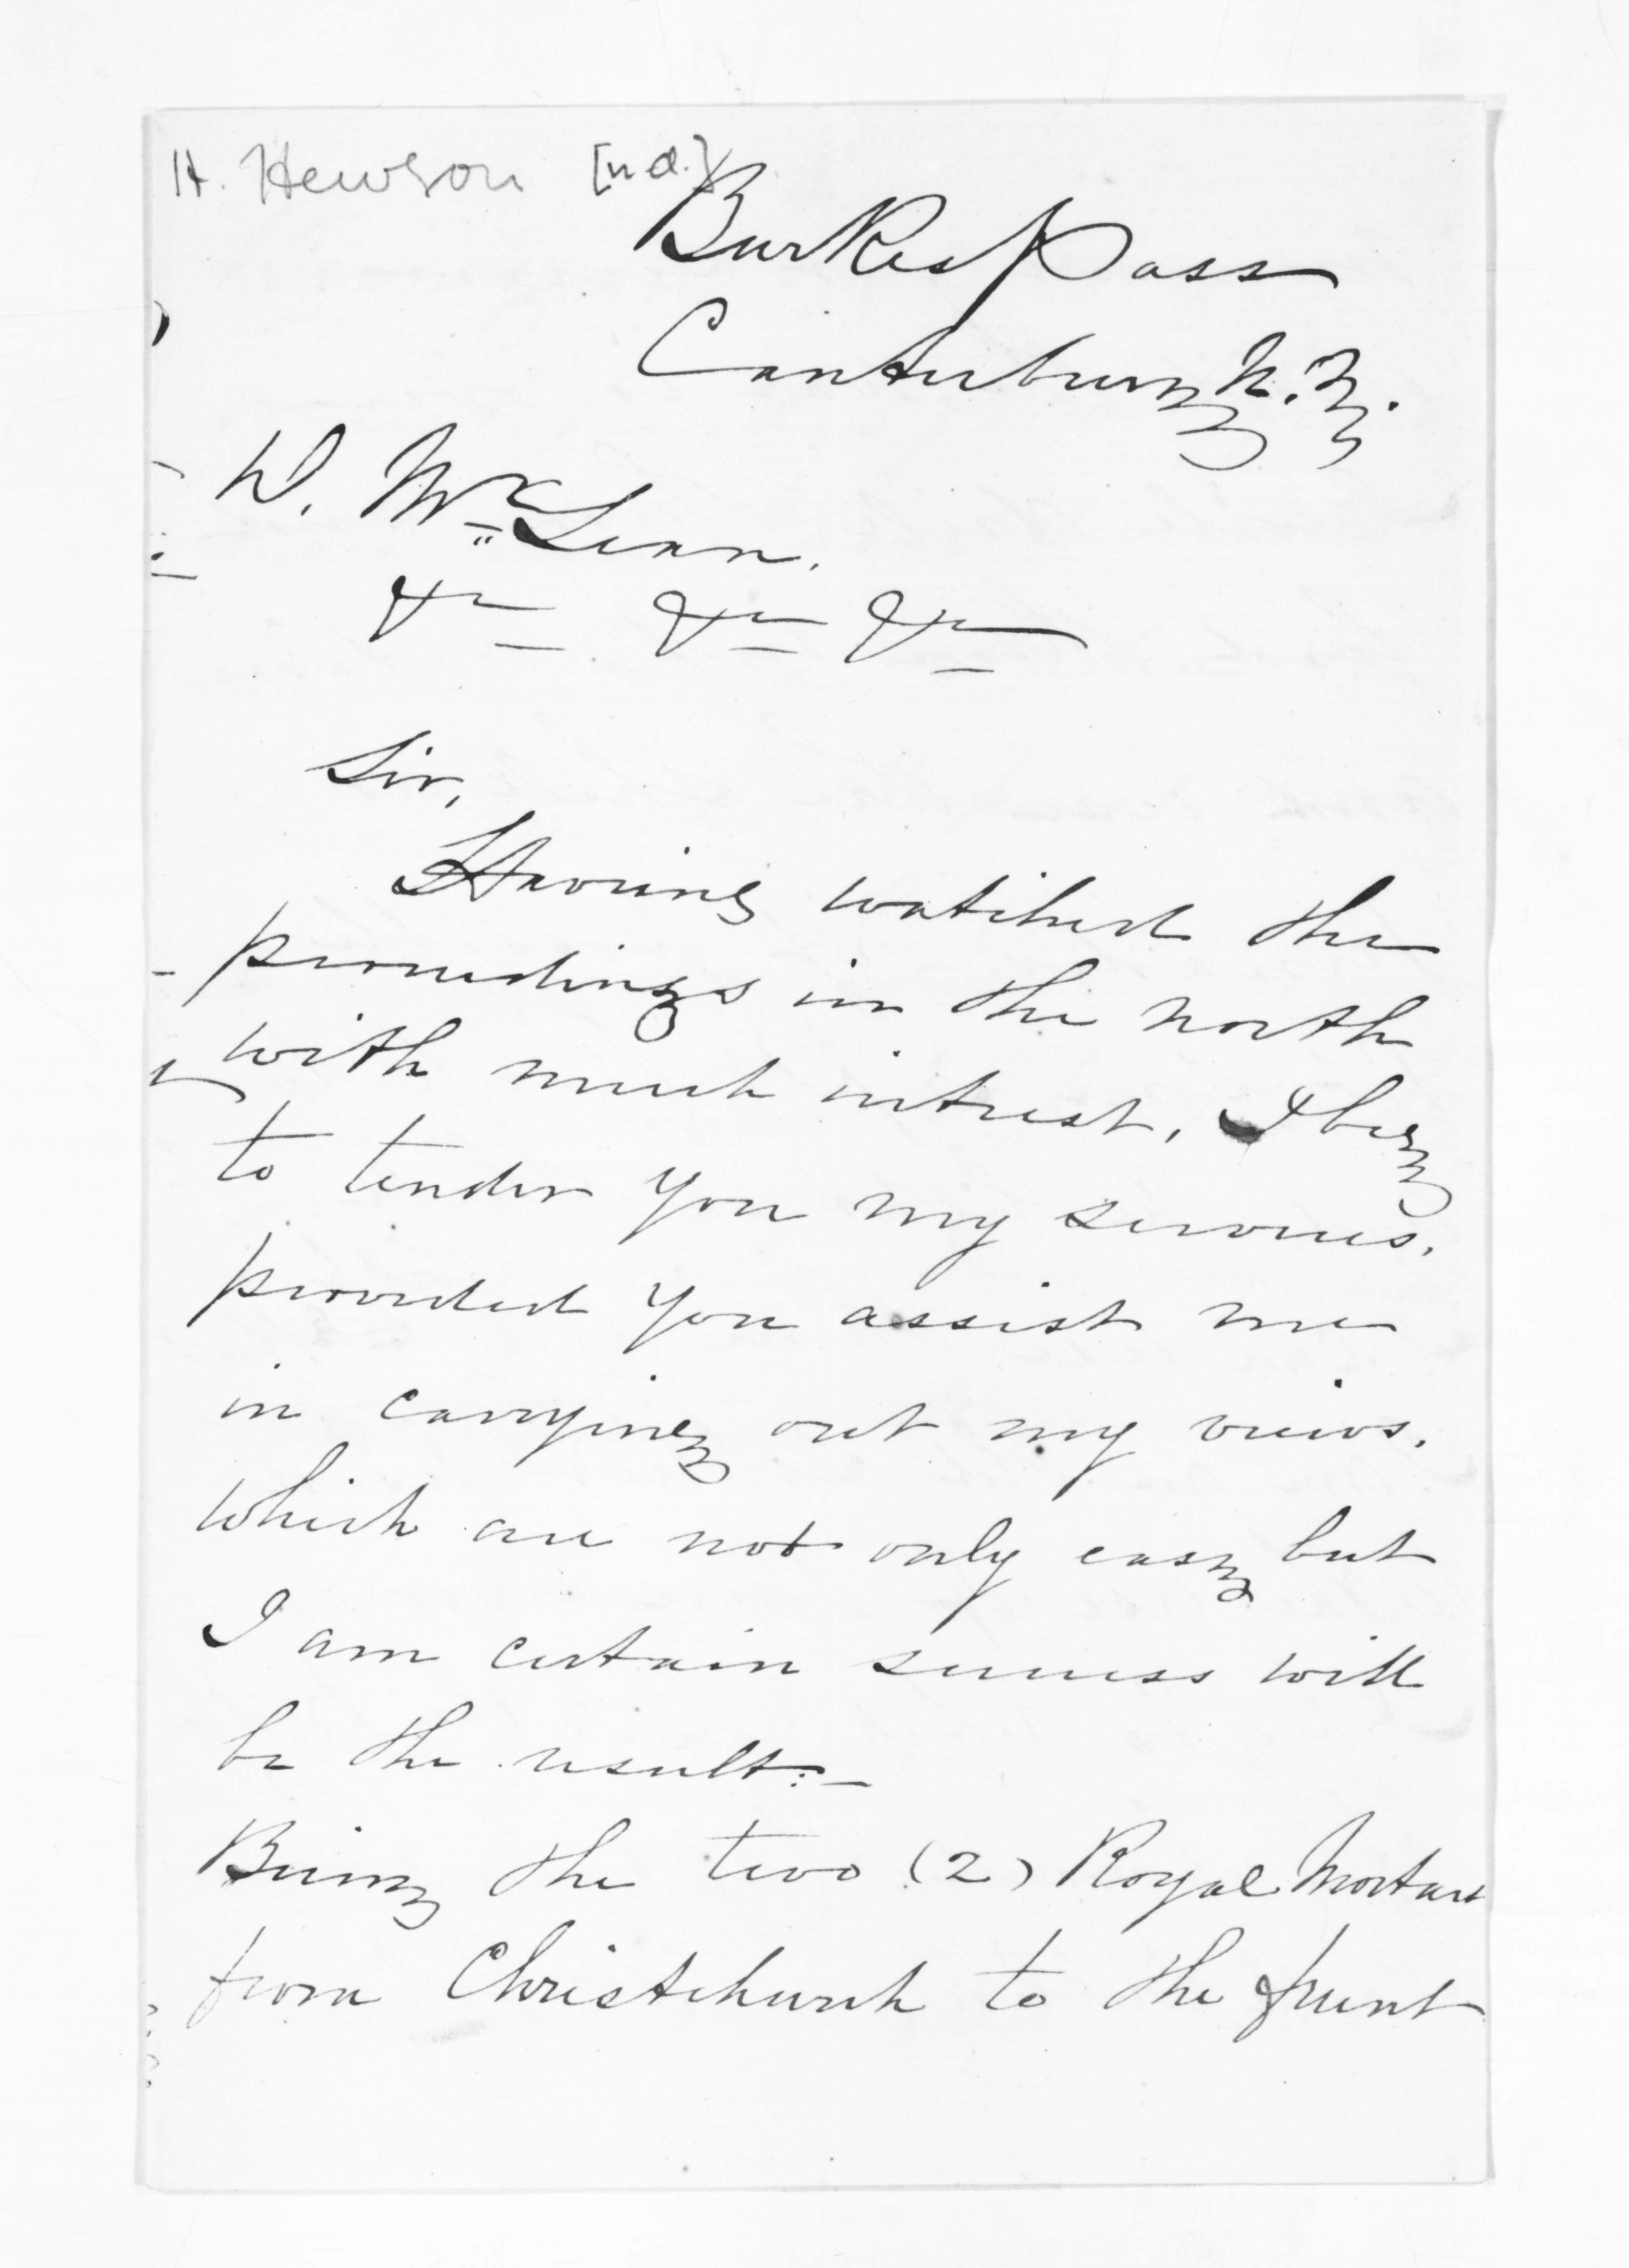 H. Hewson [n.d.]
Burkes Pass
Canterbury N.Z.
D. McLean.
&c &c &c
Sir,
Having watched the
proceedings in the north
with much intrest, I beg
to tender you my services,
provided you assist me
in carrying out my views,
which are not only easy but
I am certain success will
be the result:-
Being the two (2) Royal Mortars
from Christchurch to the frunt